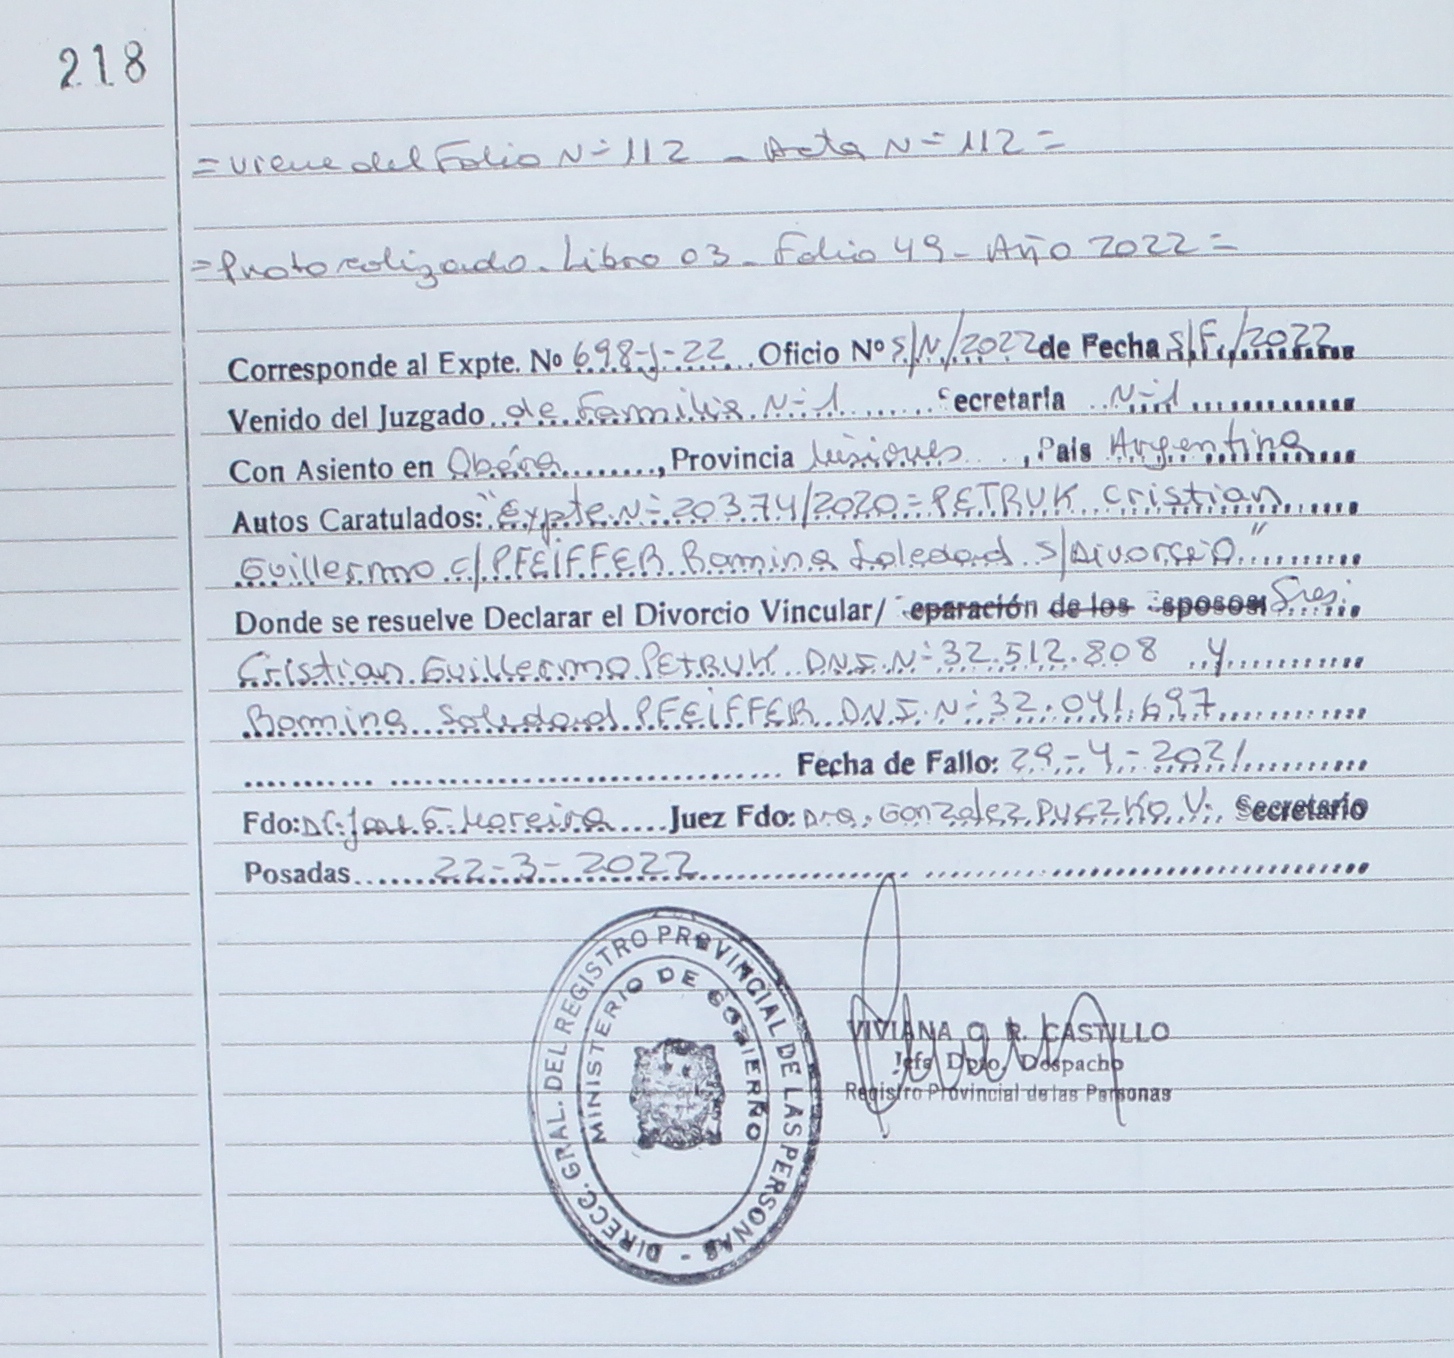 218
= Viene del Folio N= 112 - Acta N= 112 =
= Protocolizado - Libro 03 - Folio 49 - Año 2022 =
Corresponde al Expte. No 698-J-22 Oficio Nº S/N/2022 de Fecha S/F/2022
Venido del Juzgado de Familia N=1 Secretaria N=1
Con Asiento en Oberá, Provincia Misiones, Pais Argentina
Autos Caratulados: "Expte N= 20374/2020 = PETRUK Cristian
Guillermo c/ PFEIFFER Romina Soledad S/Divorcio"
Donde se resuelve Declarar el Divorcio Vincular/ eparación de los sposos Sres.
Cristian Guillermo PETRUK D.N.I. N= 32.512.808 y
Romina Soledad PFEIFFER D.N.I. N= 32.041.697
Fecha de Fallo: 29-4-2021
Fdo: Dr. José G. Moreira Juez Fdo: Dra. Gonzalez PUCZKO V. Secretario
Posadas 22-3-2022
DIRECC. GRAL. DEL REGISTRO PROVINCIAL DE LAS PERSONAS -
MINISTERIO DE GOBIERNO
VIVIANA G. R. CASTILLO
Jefa Dpto. Despacho
Registro Provincial de las Personas